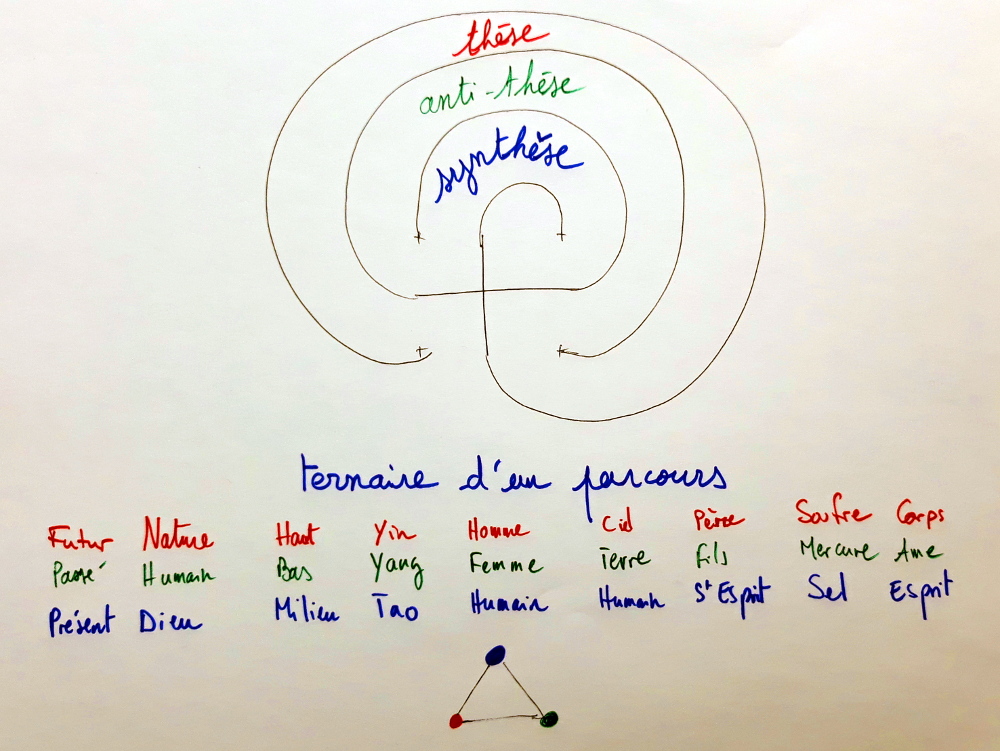 thèse
anti-thèse
synthèse
ternaire d'un parcours
Futur Nature Haut Yin Homme Ciel Père Soufre Corps
Passé Humain Bas Yang Femme Terre Fils Mercure Ame
Présent Dieu Milieu Tao Humain Humain St Esprit Sel Esprit